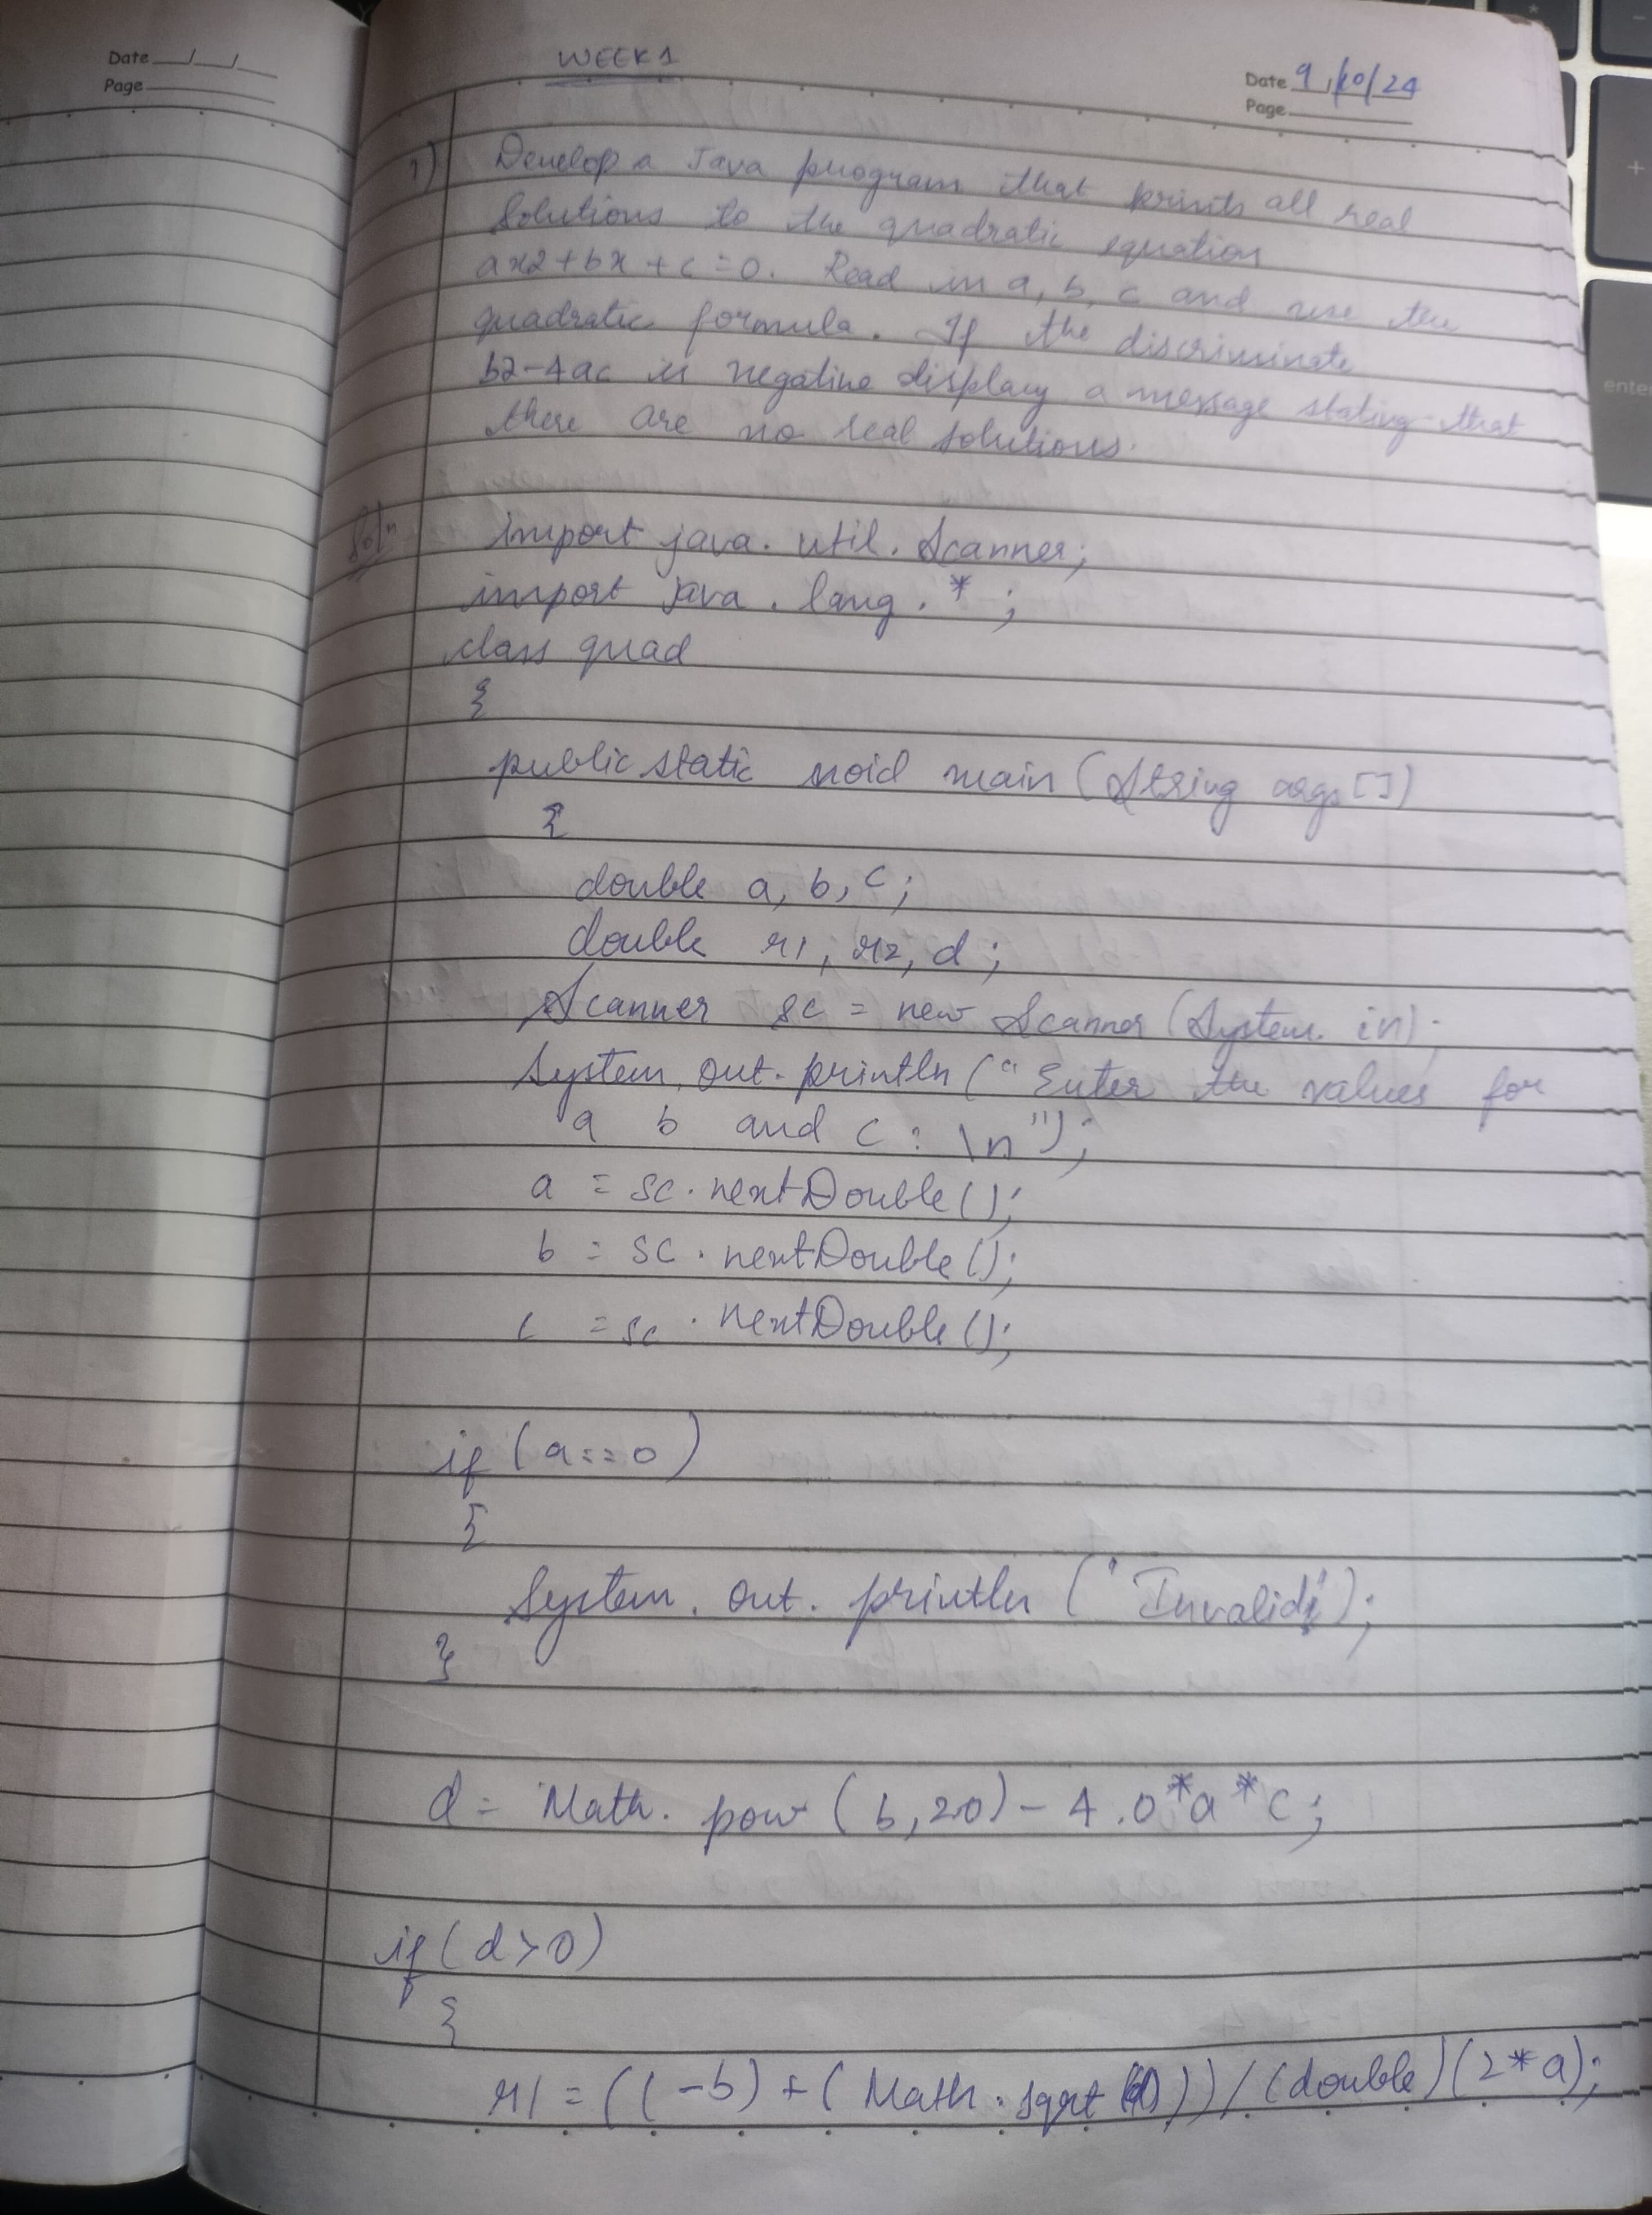 Date / /
Page
WEEK 1
Date 9/10/24
Page
1) Develop a Java program that prints all real
solutions to the quadratic equation
ax2+bx+c=0. Read in a, b, c and use the
quadratic formula. If the discriminate
b2-4ac is negative display a message stating that
there are no real solutions.
Solⁿ import java.util.Scanner;
import java.lang.*;
class quad
{
public static void main (String args[])
{
double a, b, c;
double r1, r2, d;
Scanner sc = new Scanner (System.in);
System.out.println ("Enter the values for
a b and c : \n");
a = sc.nextDouble();
b = sc.nextDouble();
c = sc.nextDouble();
if (a==0)
{
System.out.println ("Invalid");
}
d = Math.pow (b,2.0) - 4.0*a*c;
if (d>0)
{
r1 = ((-b) + (Math.sqrt(d)))/(double)(2*a);
enter
+